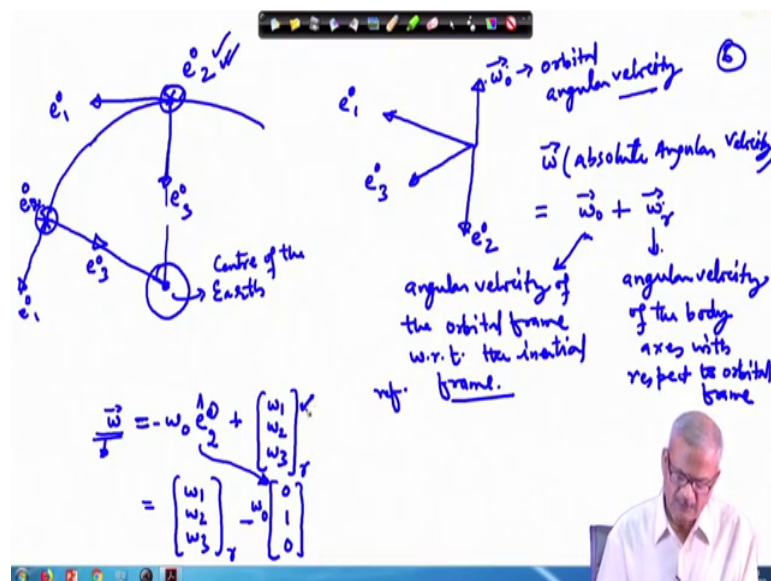 e₂⁰ ✓✓
e₁⁰
e₃⁰
e₃⁰
e₁⁰
Centre of the
Earth
ω₀ → orbital
angular velocity
6
e₁⁰
e₃⁰
e₂⁰
ω (absolute Angular Velocity)
= ω₀ + ωᵣ
angular velocity of
the orbital frame
w.r.t. the inertial
ref. frame.
angular velocity
of the body
axes with
respect to orbital
frame
ω = -ω₀ ê₂⁰ + [ω₁ ω₂ ω₃]ᵣ ✓
= [ω₁ ω₂ ω₃]ᵣ - ω₀ [0 1 0]